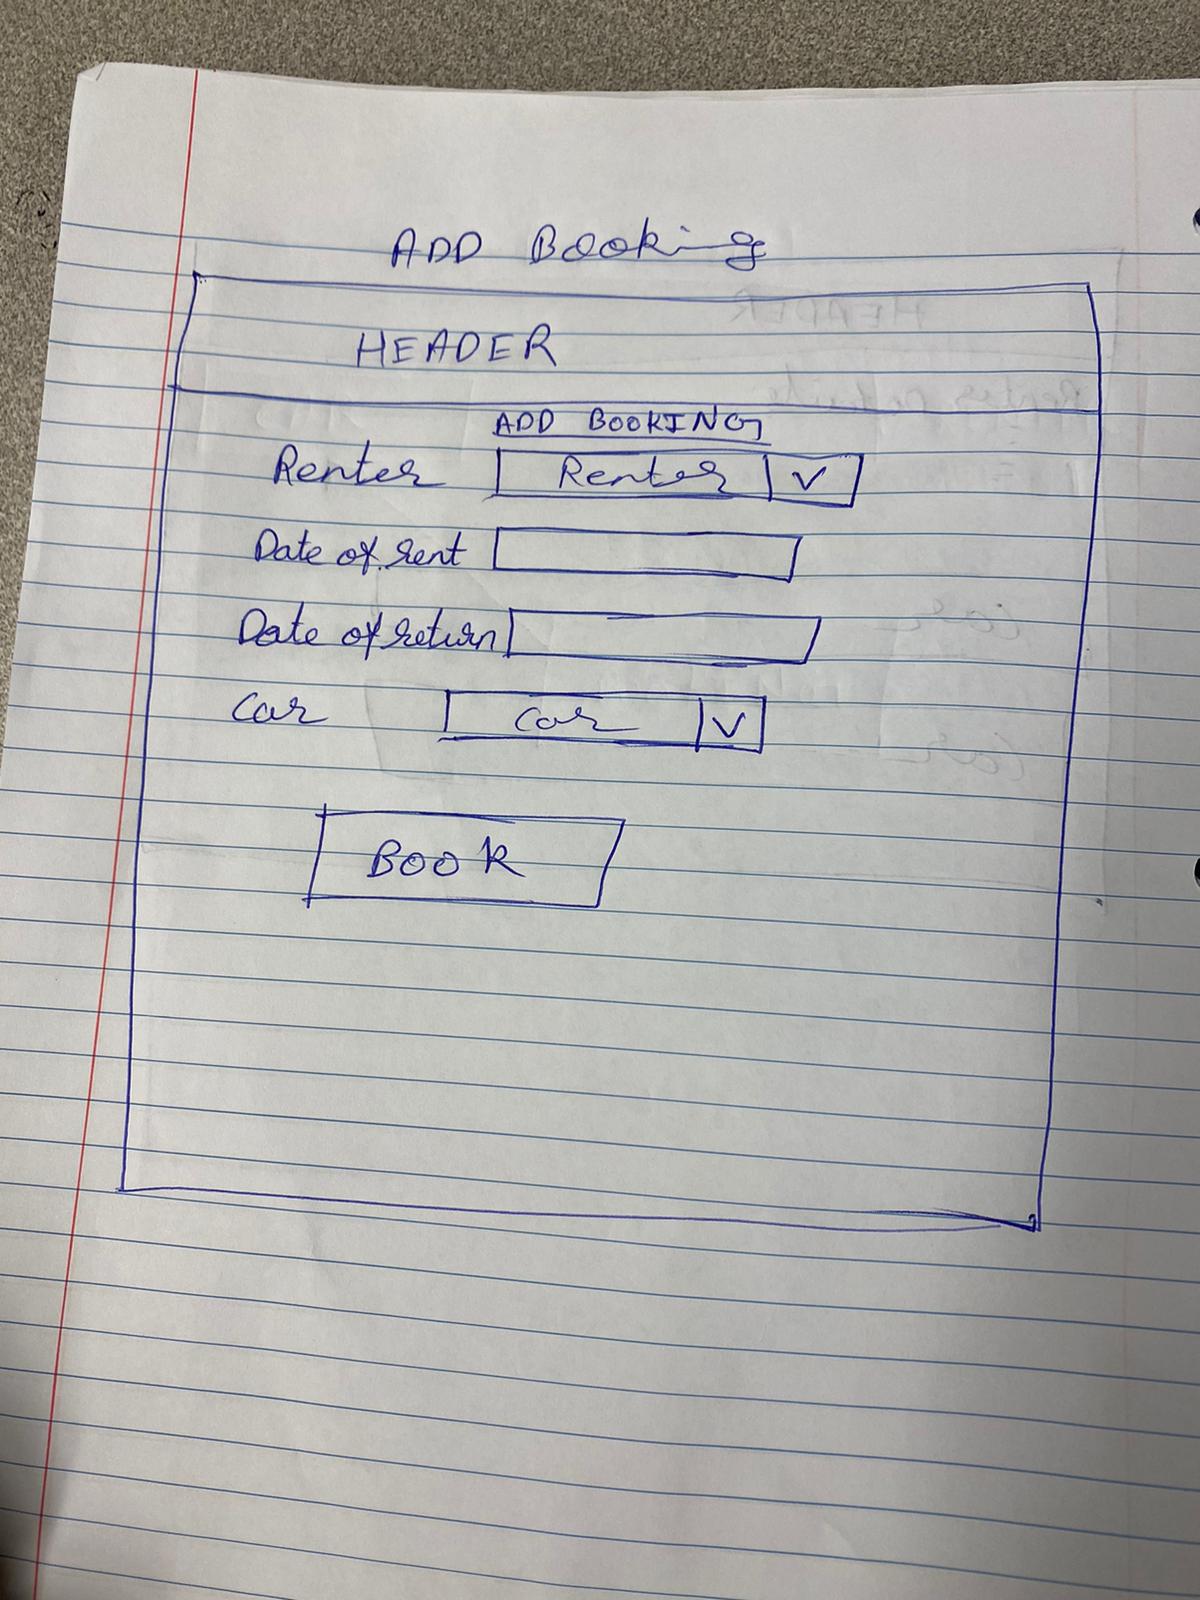 ADD Booking
HEADER
ADD BOOKING
Renter Renter V
Date of rent
Date of return
Car Car V
BOOK